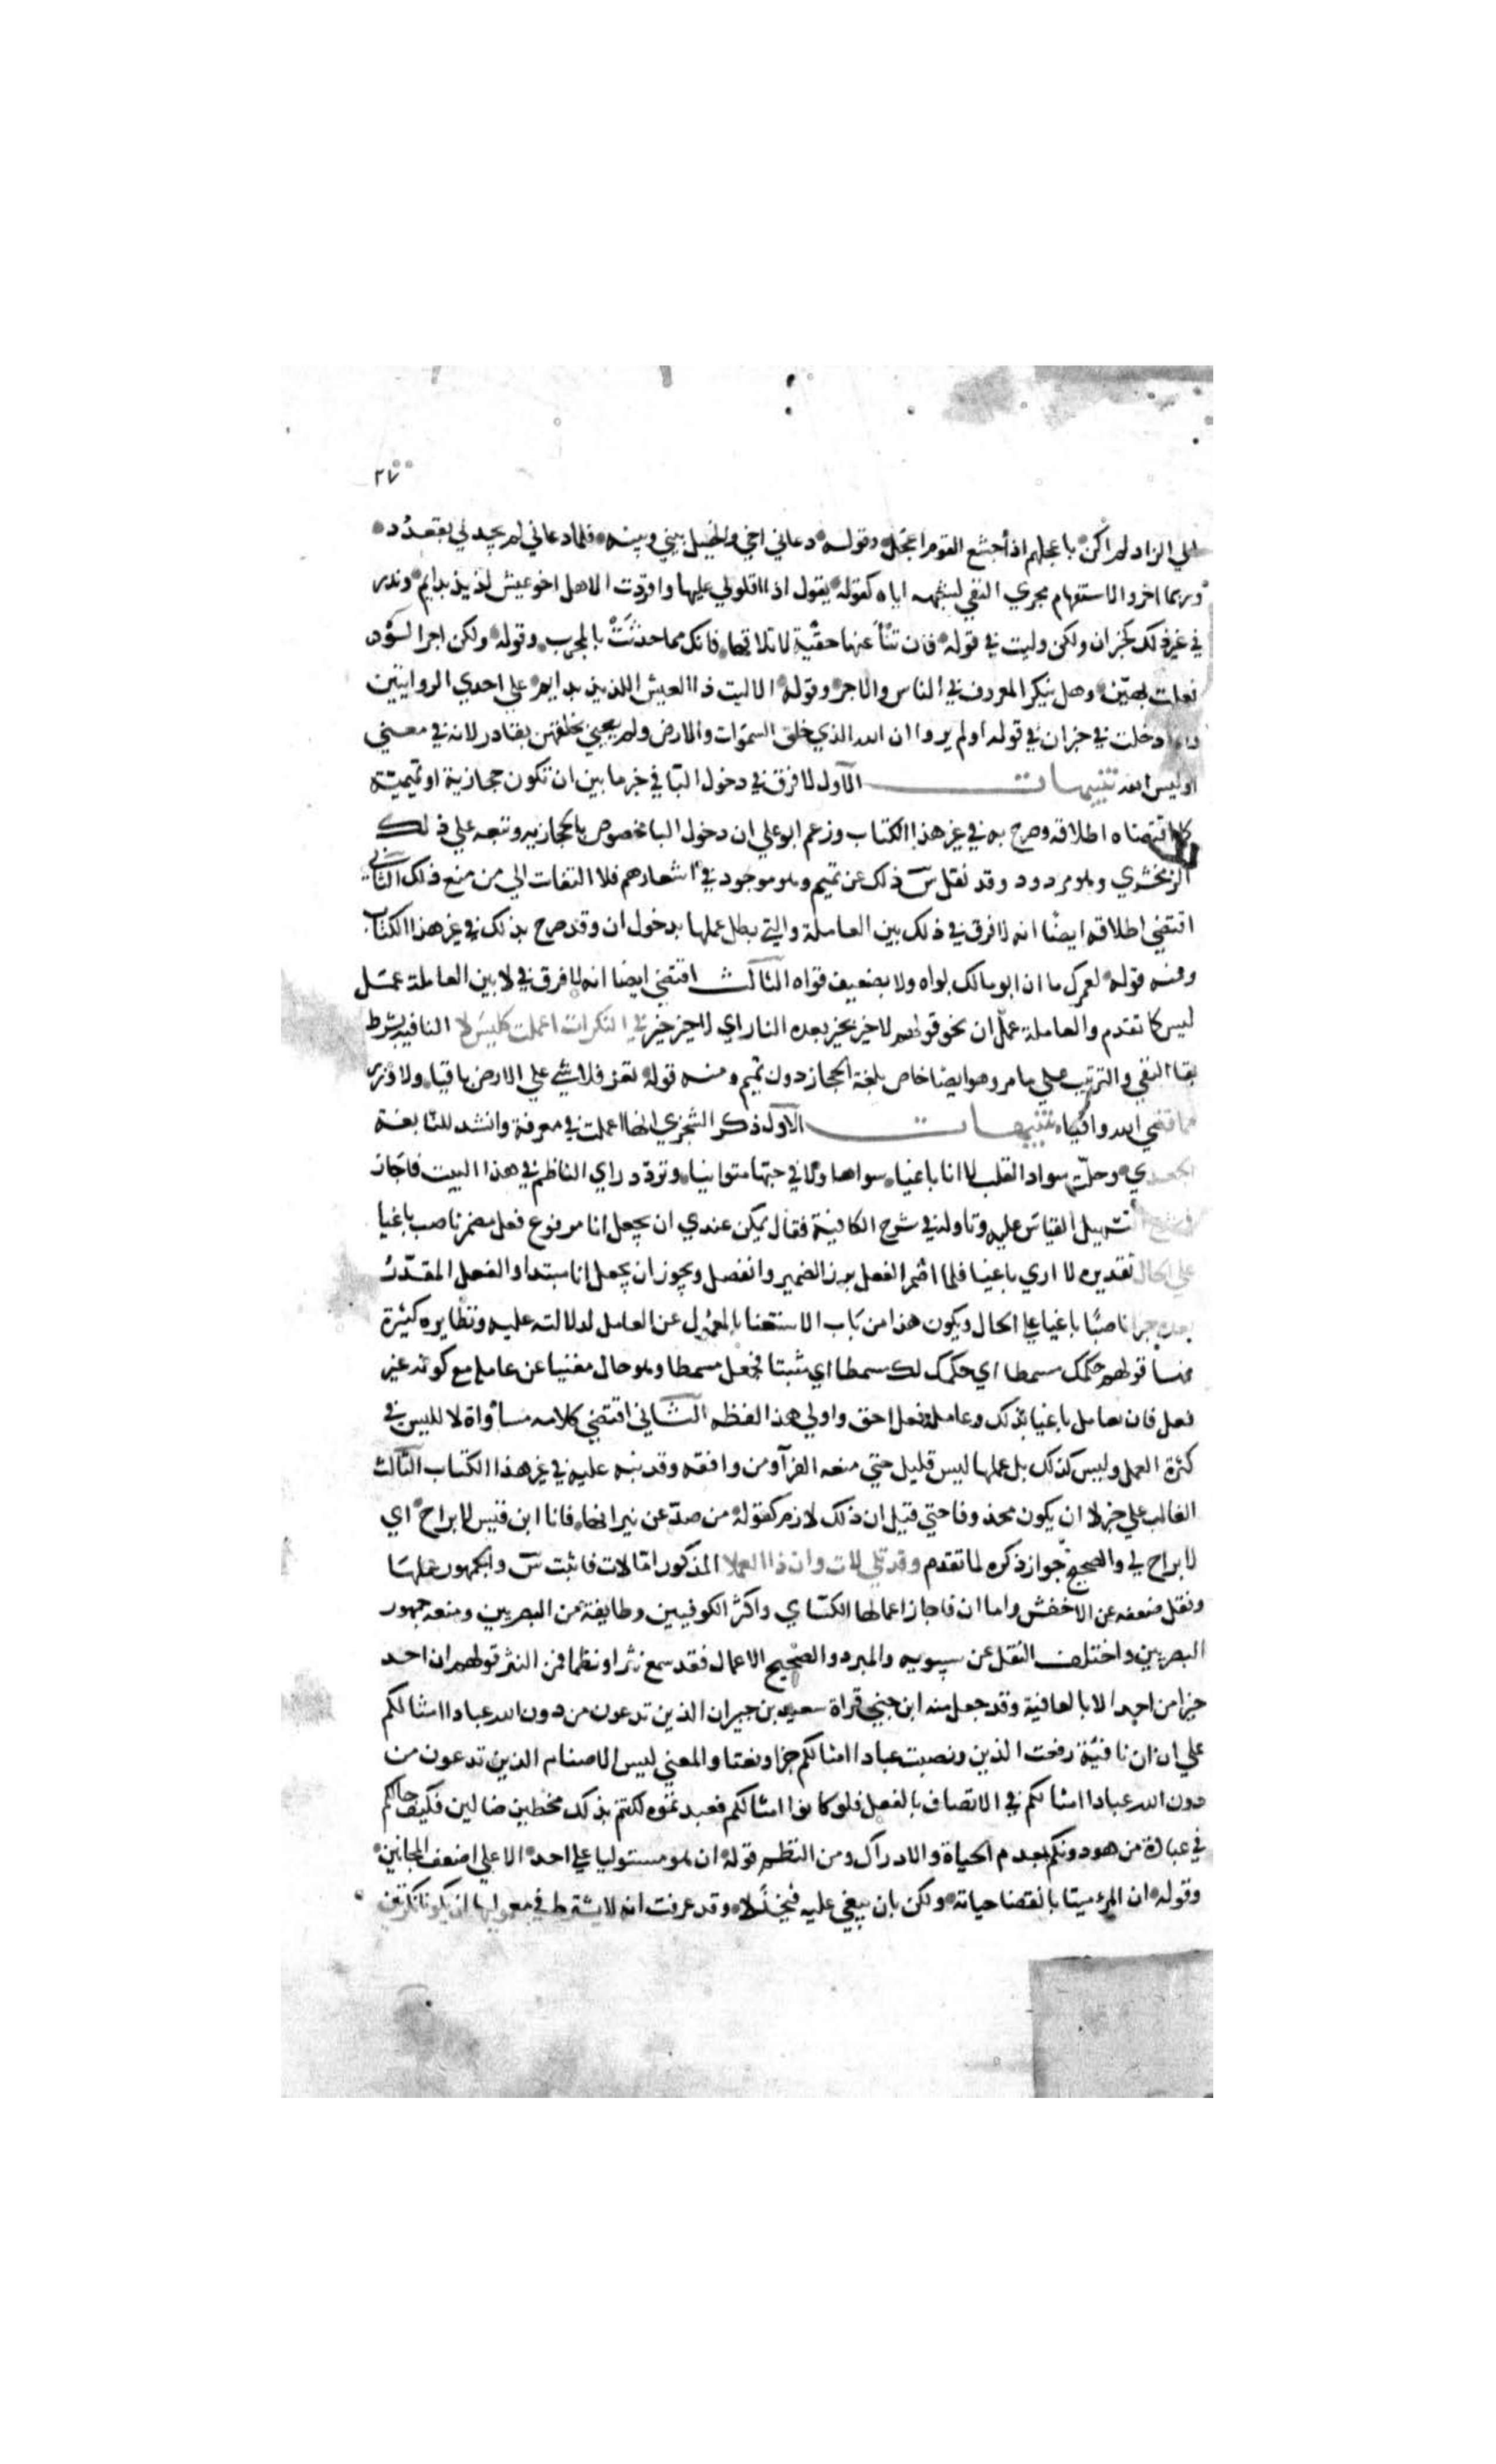 ٢٧
الي الزاد لم اكن باعجلهم اذ أجشع القوم اعجل وقوله دعاني اخي والخيل بيني وبينه فلما دعاني لم يجدني بقعدد
وربما اجروا الاستفهام مجري النفي لشبهه اياه كقوله يقول اذا اقلولي عليها واقردت الاهل اخو عيش لذيذ بدايم وندر
في غير ذلك كخبر ان ولكن وليت في قوله فان تنأ عنها حقبة لا تلاقها فانك مما احدثت بالمجرب وقوله ولكن اجرا لو
فعلت بهين وهل ينكر المعروف في الناس والاجر وقوله الا ليت ذا العيش اللذيذ بدايم علي احدي الروايتين
وانما دخلت في خبر ان في قوله اولم يروا ان الله الذي خلق السموات والارض ولم يعي بخلقهن بقادر لانه في معني
اوليس الله تنبيهات الاول لا فرق في دخول البا في خبر ما بين ان تكون حجازية او تميمية
كما اقتضاه اطلاقه وصرح به في غير هذا الكتاب وزعم ابو علي ان دخول البا مخصوص بالحجازيه وتبعه علي ذلك
الزمخشري وهو مردود وقد نقل س ذلك عن تميم وهو موجود في اشعارهم فلا التفات الي من منع ذلك الثاني
اقتضي اطلاقه ايضا انه لا فرق في ذلك بين العاملة والتي بطل عملها بدخول ان وقد صرح بذلك في غير هذا الكتاب
ومنه قوله لعمرك ما ان ابو مالك بواه ولا بضعيف قواه الثالث اقتضي ايضا انه لا فرق في لا بين العاملة عمل
ليس كما تقدم والعاملة عمل ان نحو قولهم لا خير بخير بعده النار اي لا خير خير في النكرات اعملت كليس لا النافيه بشرط
بقا النفي والترتيب علي ما مر وهو ايضا خاص بلغة الحجاز دون تميم ومنه قوله تعز فلا شي علي الارض باقيا ولا وزر
مما قضي الله واقيا تنبيهات الاول ذكر الشجري انها اعملت في معرفة وانشد للنابغة
الجعدي وحلت سواد القلب لا انا باغيا سواها ولا في حبها متوانيا وتردد راي الناظم في هذا البيت فاجاز
في شرح التسهيل القياس عليه وتاوله في شرح الكافية فقال يمكن عندي ان يجعل انا مرفوع فعل مضمر ناصب باغيا
علي الحال تقديره لا اري باغيا فلما اضمر الفعل برز الضمير وانفصل ويجوز ان يجعل انا مبتدا والفعل المقدر
بعده خبرا ناصبا باغيا علي الحال ويكون هذا من باب الاستغنا بالمعمول عن العامل لدلالته عليه ونظايره كثيرة
منها قولهم حكمك مسمطا اي حكمك لك مسمطا اي مثبتا فجعل مسمطا وهو حال مغنيا عن عامله مع كونه غير
فعل فان يعامل باغيا بذلك وعامله فعل احق واولي هذا لفظه الثاني اقتضي كلامه مساواة لا لليس في
كثرة العمل وليس كذلك بل عملها ليس قليل حتي منعه الفرآ ومن وافقه وقد نبه عليه في غير هذا الكتاب الثالث
الغالب علي خبر لا ان يكون محذوفا حتي قيل ان ذلك لازم كقوله من صد عن نيرانها فانا ابن قيس لا براح اي
لا براح لي والصحيح جواز ذكره لما تقدم وقد تلي لات وان ذا العملا المذكور اما لات فاثبت س والجمهور عملها
ونقل منعه عن الاخفش واما ان فاجاز اعمالها الكساي واكثر الكوفيين وطايفة من البصريين ومنعه جمهور
البصريين واختلف النقل عن سيبويه والمبرد والصحيح الاعمال فقد سمع نثرا ونظما فمن النثر قولهم ان احد
خيرا من احد الا بالعافية وقد جعل منه ابن جني قراة سعيد بن جبير ان الذين تدعون من دون الله عبادا امثالكم
علي ان ان نافية رفعت الذين ونصبت عبادا امثالكم خبرا ونعتا والمعني ليس الاصنام الذين تدعون من
دون الله عبادا امثالكم في الاتصاف بالفعل فلو كانوا امثالكم فعبدتموه لكنتم بذلك مخطيين ضالين فكيف حالكم
في عبادة من هو دونكم بعدم الحياة والادراك ومن النظم قوله ان هو مستوليا علي احد الا علي اضعف المجانين
وقوله ان المرء ميتا بانقضا حياته ولكن بان يبغي عليه فيخذلا وقد عرفت انه لا يشترط في معموليها ان يكونا نكرتين